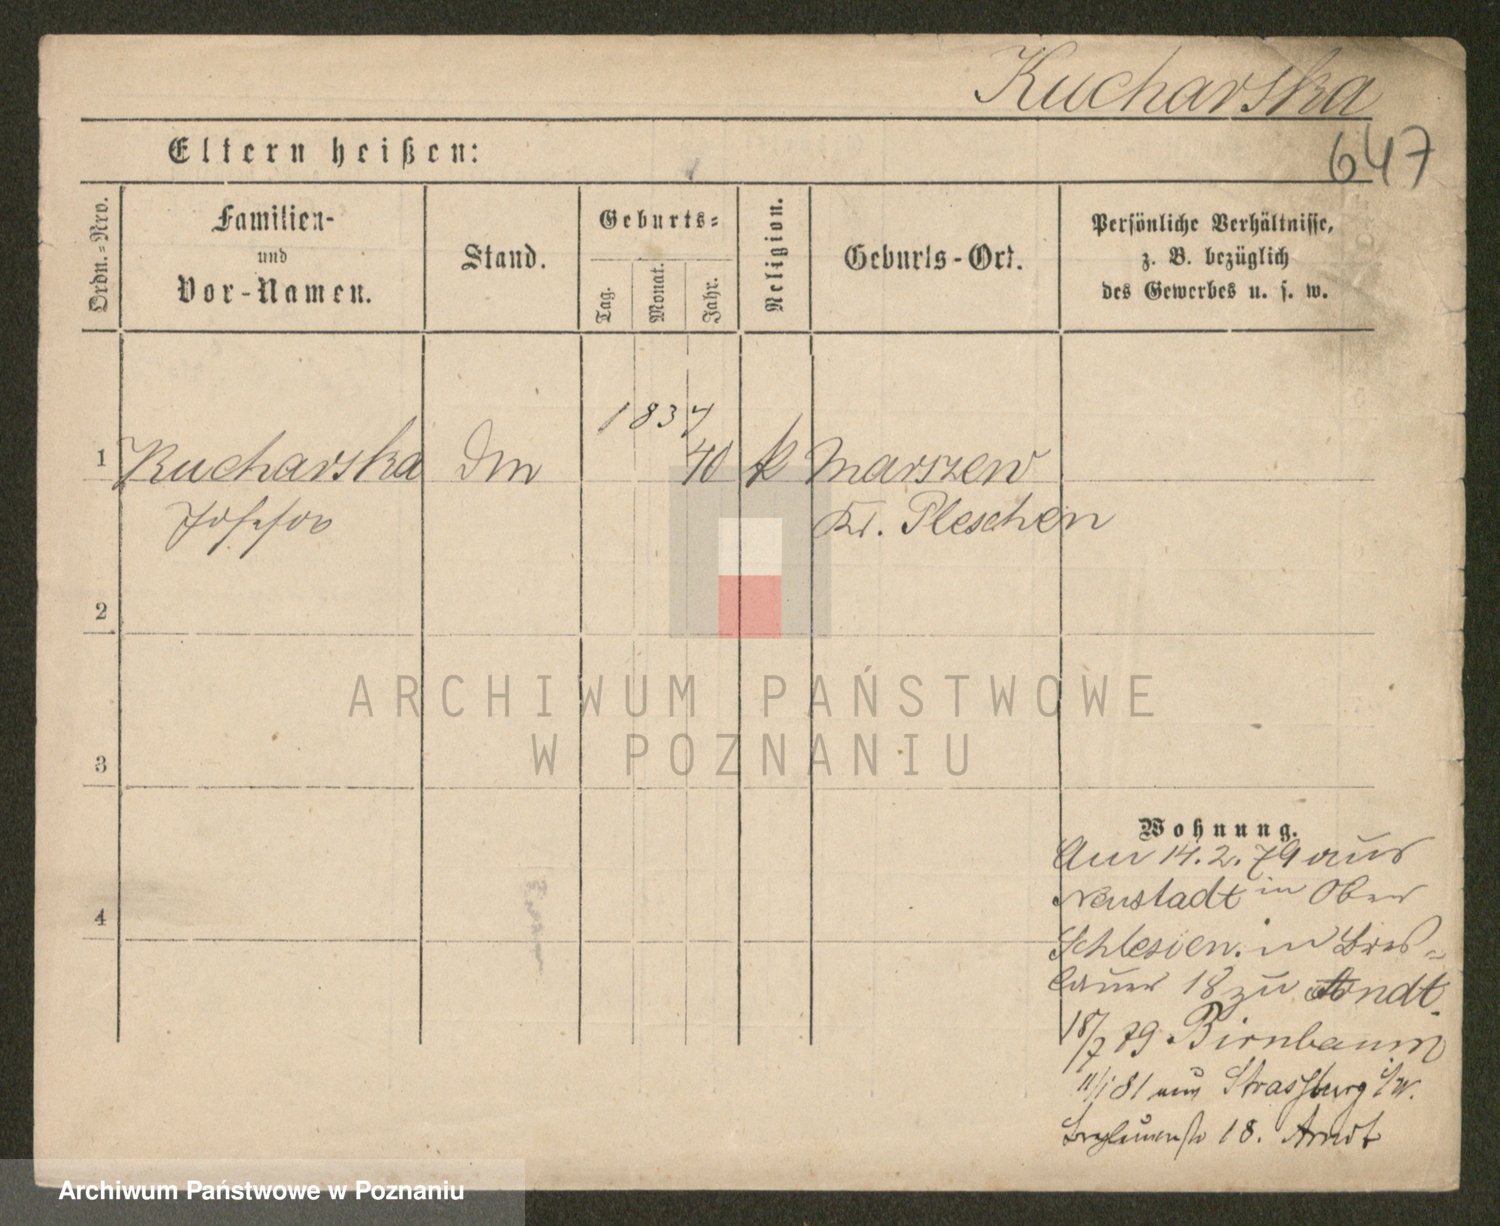 Kucharska
647
Eltern heißen:
Ordn.-Nro.
Familien-
und
Vor-Namen.
Stand.
Geburts-
Tag.
Monat.
Jahr.
Religion.
Geburts-Ort.
Persönliche Verhältnisse,
z. B. bezüglich
des Gewerbes u. s. w.
1837
1 Kucharska 40 k Marszew
Kr. Pleschen
2
3
4
Wohnung.
Am 14.2.79 aus
Neustadt in Ober
Schlesien. in Bres-
lauer 18 zu Arndt.
18/7 79 Birnbaum
11/1 81 aus Strassburg i/W.
18. Arndt
ARCHIWUM PAŃSTWOWE
W POZNANIU
Archiwum Państwowe w Poznaniu